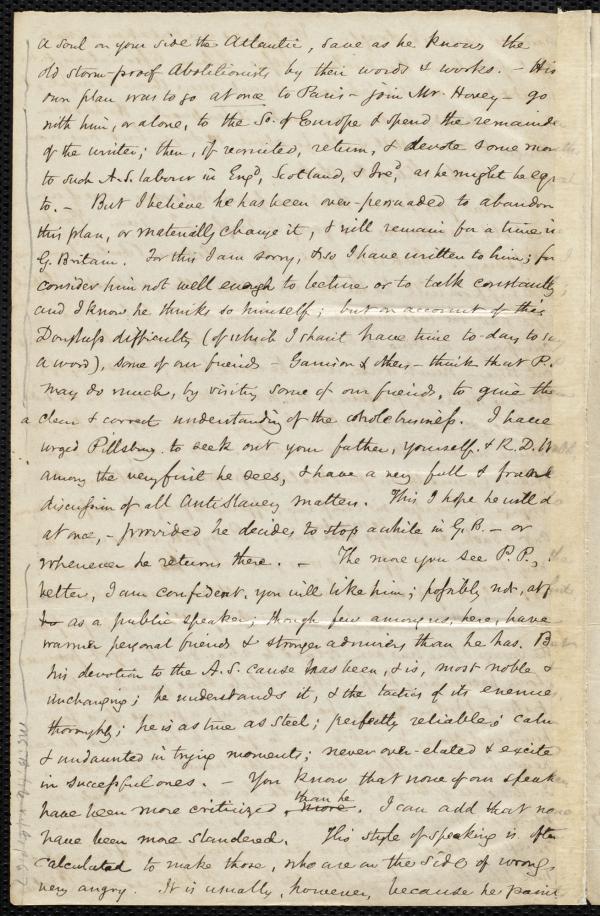 a soul on your side the Atlantic, save as he knows the
old storm-proof Abolitionists by their words & works. – His
own plan was to go at once to Paris – join Mr. Hovey – go
with him, or alone, to the So. of Europe & spend the remainde
of the winter; then, if recruited, return, & devote some mon
to such A.S. labour in Engd, Scotland, & Ired, as he might be equ
to. – But I believe he has been over-persuaded to abandon
this plan, or materially change it, & will remain for a time in
G. Britain. For this I am sorry, & so I have written to him; for
I consider him not well enough to lecture or to talk constantly;
and I know he thinks so himself; but on account of this
Douglass difficulty (of which I shan't have time to-day to s
a word), some of our friends – Garrison & others – think that P.
may do much, by visiting some of our friends, to give the
a clear & correct understanding of the whole business. I have
urged Pillsbury to seek out your father, yourself & R.D.W
among the very first he sees, & have a very full & frank
discussion of all Anti Slavery matters. This I hope he will d
at once, – provided he decides to stop awhile in G.B. – or
whenever he returns there. – The more you see P.P.,
better, I am confident, you will like him; possibly not, at f
as a public speaker; though few among us, here, have
warmer personal friends & stronger admirers than he has. B
his devotion to the A.S. cause has been, & is, most noble &
unchanging; he understands it, & the tactics of its enemie
thoroughly; he is as true as steel; perfectly reliable; calm
& undaunted in trying moments; never over-elated & excited
in successful ones. – You know that none of our speake
have been more criticized than he. I can add that no
have been more slandered. This style of speaking is often
calculated to make those, who are on the side of wrong,
very angry. It is usually, however, because he paint